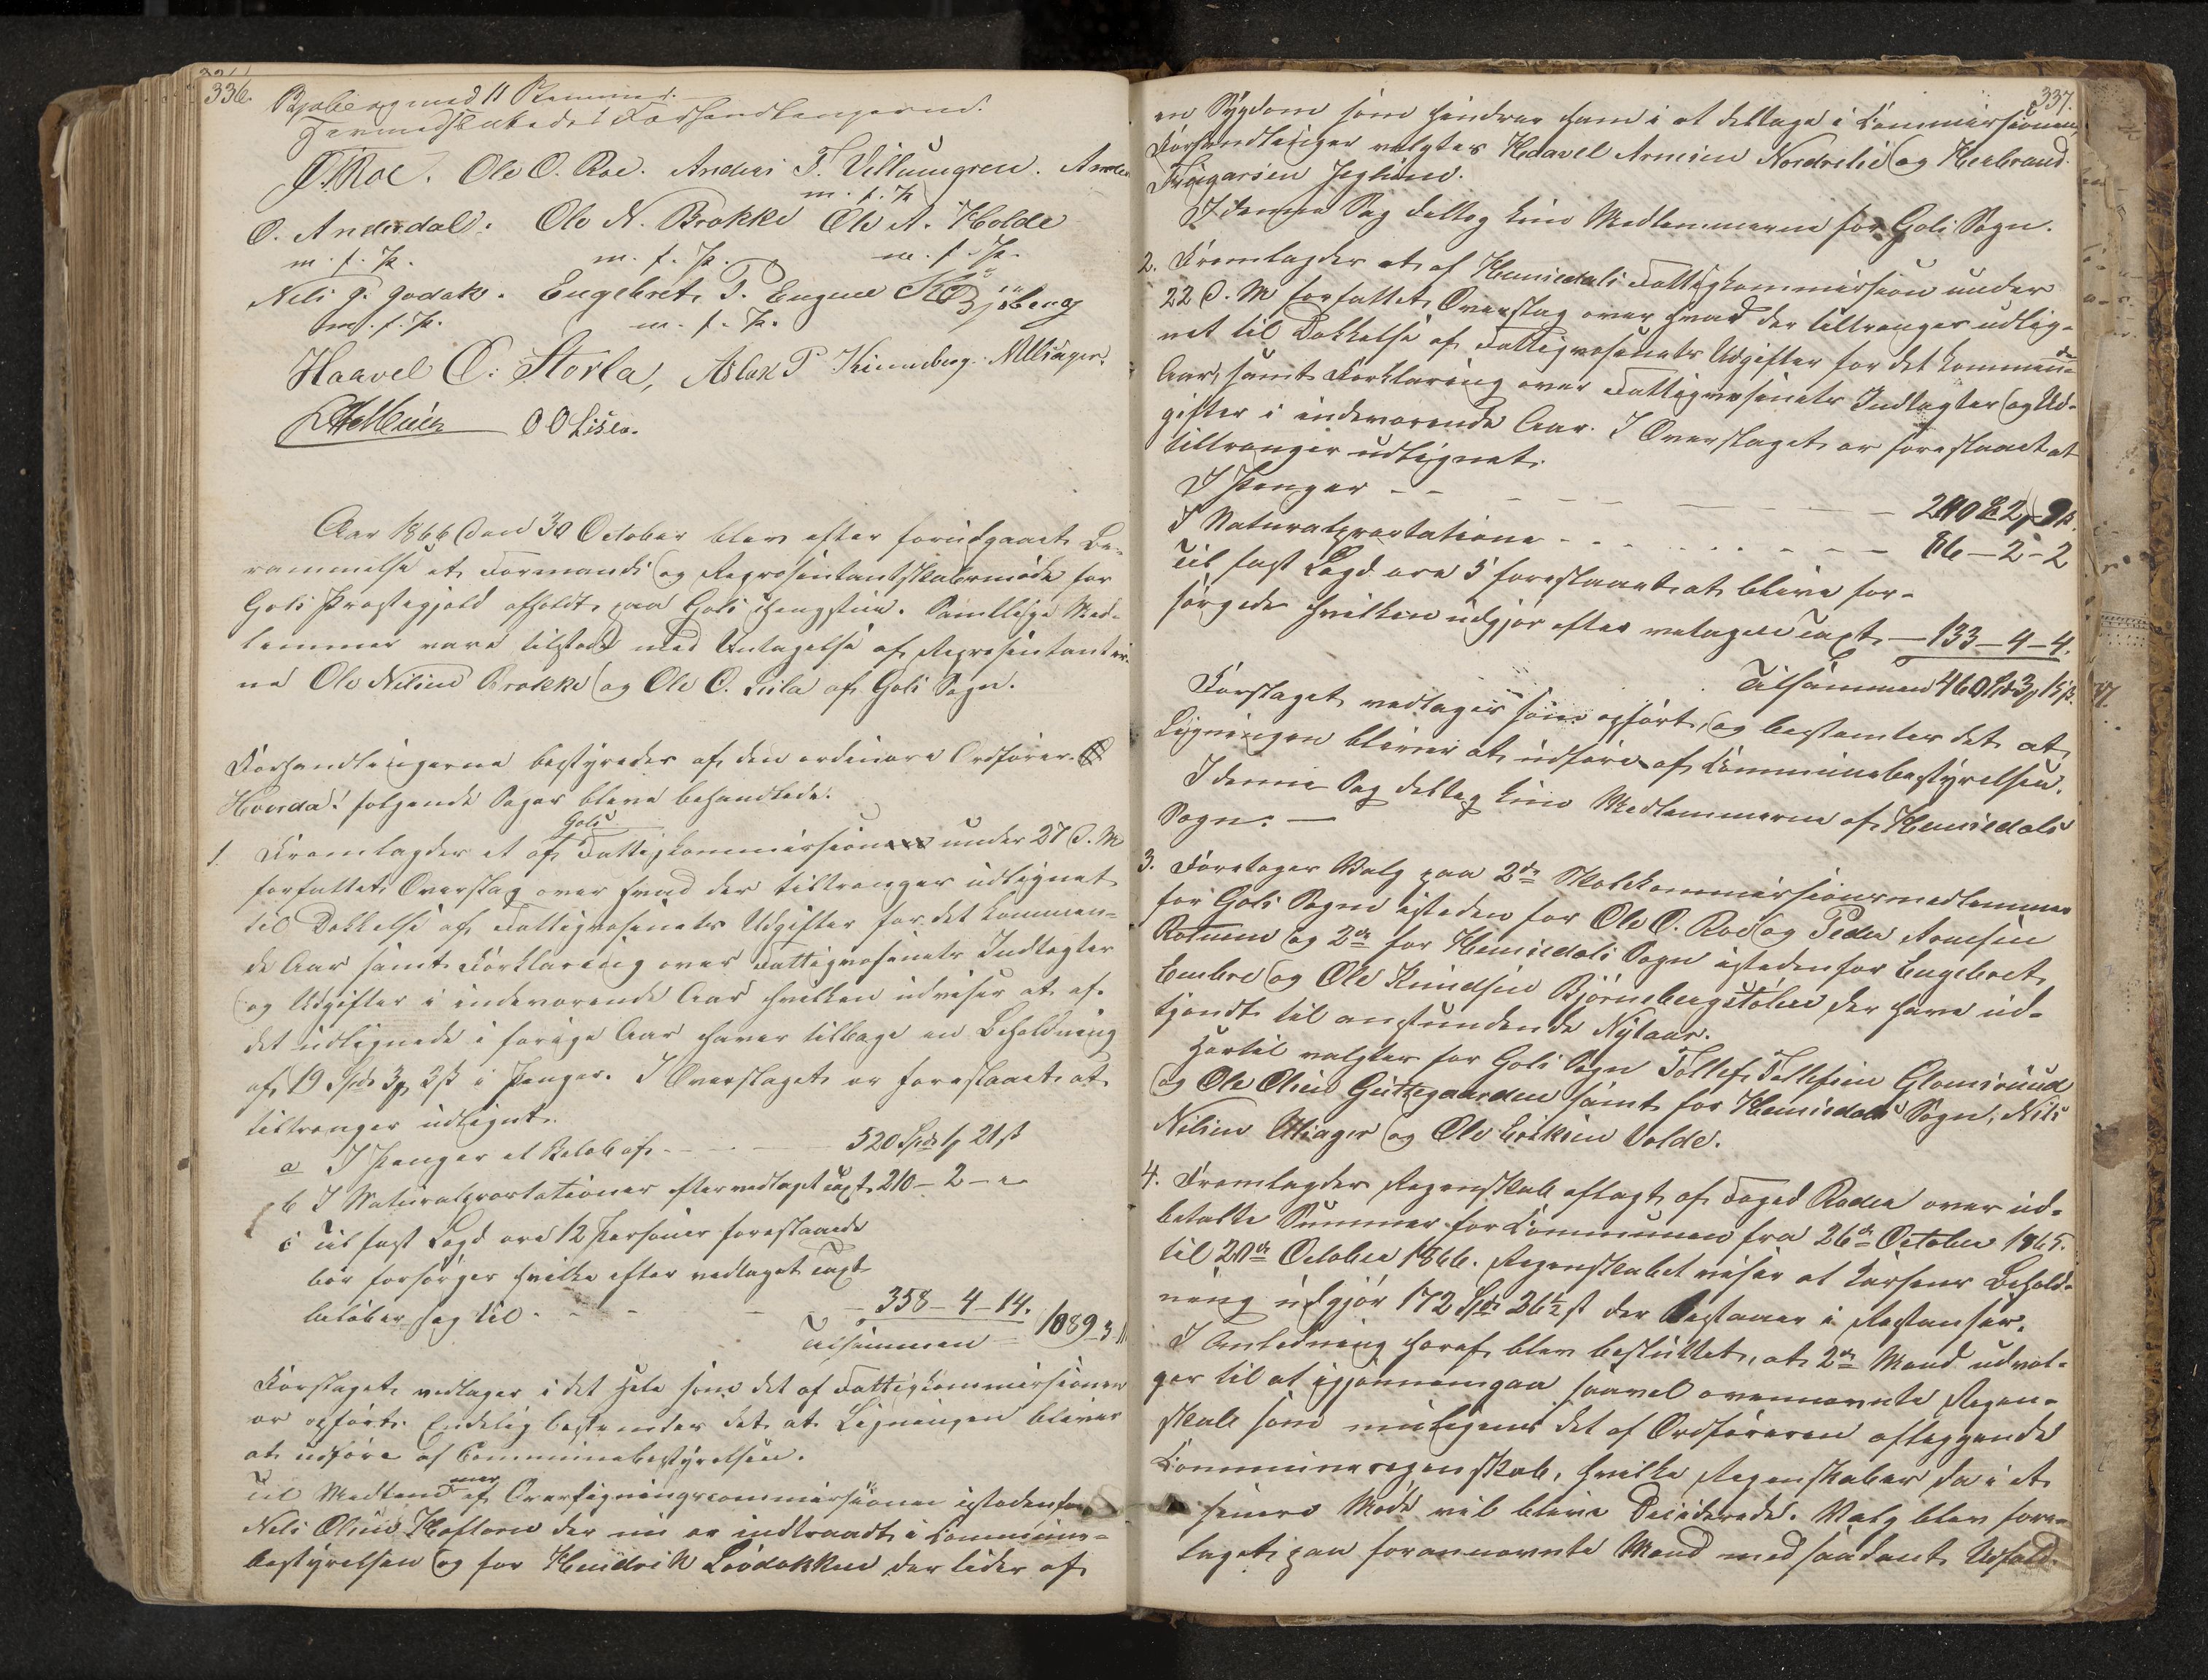 336.
Bjøberg med 11 Stemmer.
Hermed sluttedes Forhandlingerne.
Ole O. Roe. Anders T. Villumgren.
m. f. P.
O. Anderdal. Ole N. Brokke Ole A. Holde
m. f. P. m. f. P. m. f. P.
Nils G. Godak. Engebret P. Eugene Bjøberg
m. f. P. m. f. P.
Haavel C. Storla, Aslak P Kinneberg.
O O Lisla.
Aar 1866 den 30 October blev efter forudgaaet Be-
rammelse et Formands og Repræsentantskabsmøde for
Gols Præstegjeld afholdt paa Gols Thingstue. Samtlige Med-
lemmer vare tilstede med Untagelse af Repræsentanter-
ne Ole Nilsen Brokke og Ole O. Lisla af Gols Sogn.
Forhandlingerne bestyredes af den ordinære Ordfører
følgende Sager bleve behandlede.
Gols
1. Fremlagdes et af Fattigkommissionen under 27 d. M
forfattet Overslag over hvad der tiltrænges udlignet
til Dækkelse af Fattigvæsenets Udgifter for det kommen-
de Aar samt Forklaring over Fattigvæsenets Indtægter
og Udgifter i indeværende Aar hvilken udviser at af
det udlignede i forige Aar haves tilbage en Beholdning
af 19 Spd 3 2 ß i Penger. I Overslaget er foreslaaet at
tiltrænges udlignt.
a I Penger et Beløb af - - - 520 Spd 1 21 ß
b I Naturalpræstationer efter vedtaget Taxt 210 - 2 - "
c Til fast Lægd ere 12 Personer foreslaaede
bør forsørges hvilke efter vedtaget Taxt
beløber sig til - - - - 358 - 4 - 14.
Tilsammen - 1089 3 11
Forslaget vedtages i det Hele som det af Fattigkommissionen
er opført. Endelig bestemtes det at Ligningen bliver
at udføre af Communebestyrelsen.
mer
Til Medlem af Overligningscommissionen istedenfor
Nils Olsen Hoftun der nu er indtraadt i Commune-
bestyrelsen og for Hendrik Lødøkken der lider af
337.
en Sygdom som hindrer ham i at deltage i Commissionens
Forhandlinger valgtes Haavel Arnesen Nordrelie og Herbrand
I denne Sag deltog kun Medlemmerne for Gols Sogn.
2. Fremlagdes et af Hemsedals Fattigkommission under
22 d. M forfattet Overslag over hvad der tiltrænges udlig-
net til Dækkelse af Fattigvæsenets Udgifter for det kommen-
de
Aar, samt Forklaring over Fattigvæsenets Indtægter og Ud-
gifter i indeværende Aar. I Overslaget er foreslaaet at
tiltrænges udlignet.
I Penger - - - - - 240 2 9 ß.
I Naturalpræstatione - - - - 86 - 2 - 2
Til fast Lægd ere 5 foreslaaet at blive for-
sørgede hvilken udgjør efter vetagen Taxt - 133 - 4 - 4.
Tilsammen 460 Spd 3 15 ß.
Forslaget vedtages som opført, og bestemtes det at
Ligningen bliver at udføre af Communebestyrelsen.
I denne Sag deltog kun Medlemmerne af Hemsedals
Sogn. -
3. Foretoges Valg paa 2de Skolekommissionsmedlemmer
for Gols Sogn isteden for Ole O. Roe og Peder Arnesen
Rotneim og 2de for Hemsedals Sogn istedenfor Engebret
Embre og Ole Knudsen Bjørnebergstølen der have ud-
tjendt til anstundende Nytaar.
Hertil valgtes for Gols Sogn Tollef Tollefsen Glomsrud
og Ole Olsen Guttegaarden samt for Hemsedals Sogn, Nils
Nilsen Ulsager og Ole Eriksen Volde.
4. Fremlagdes Regenskab aflagt af Foged Roden over ud-
betalte Summer for Communen fra 26de October 1865.
til 20de October 1866. Regenskabet viser at Kassens Behold-
ning udgjør 172 Spd 26½ ß der bestaaer i Restanser.
I Anledning heraf blev besluttet, at 2de Mænd udvæl-
ges til at igjennemgaa saavel ovennævnte Regen-
skab som muligens det af Ordføreren aflæggende
Communeregenskab, hvilke Regenskaber da i et
senere Møde vil blive Deciderede. Valg blev fore-
taget paa forannævnte Mænd med saadant Udfald.